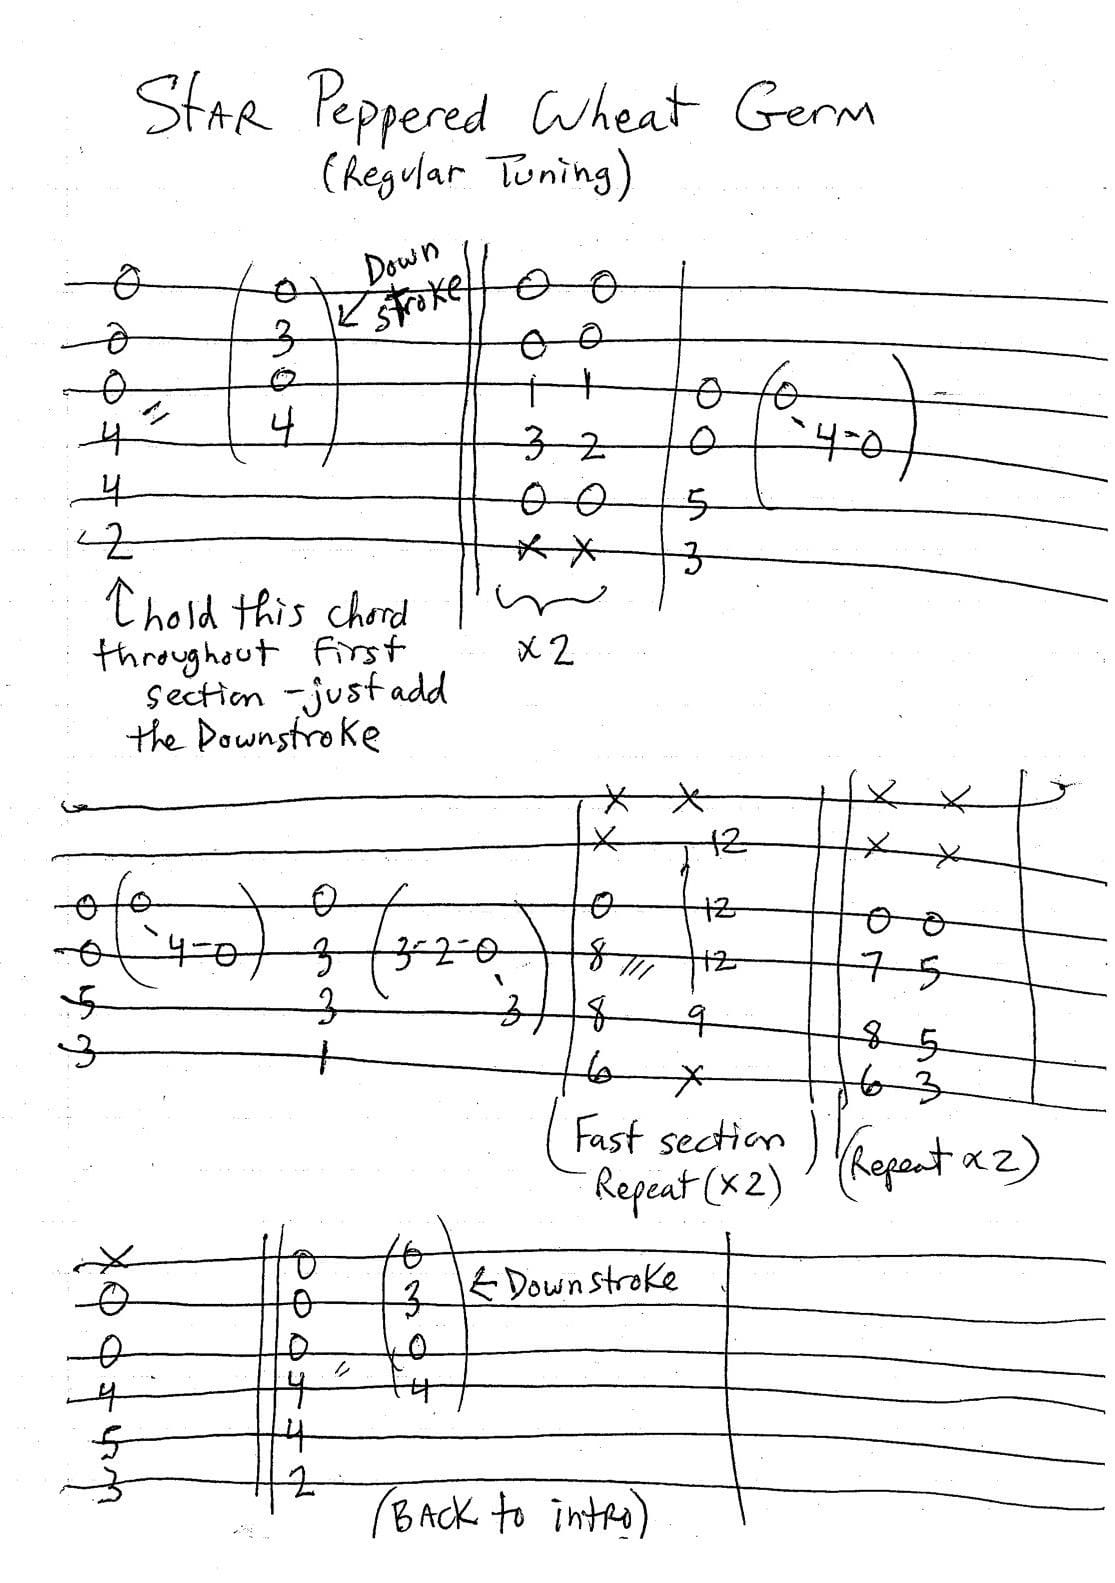 StAR Peppered Wheat Germ
(Regular Tuning)
Down
stroke
0 0 0 0
0 3 0 0
0 " 0 1 1 0 (0
4 4 3 2 0 4-0)
4 0 0 5
2 x x 3
↑ hold this chord
throughout first
section - just add
the Downstroke
x 2
x x x x
x 12 x x
0 (0 0 0 12 0 0
0 4-0) 3 (3-2-0 8 //// 12 7 5
5 3 3) 8 9 8 5
3 1 6 x 6 3
(Fast section)
Repeat (x2)
(Repeat x 2)
x 0 (0
0 0 3 ← Downstroke
0 0 " 0
4 4 4)
5 4
3 2
(BACK to intro)